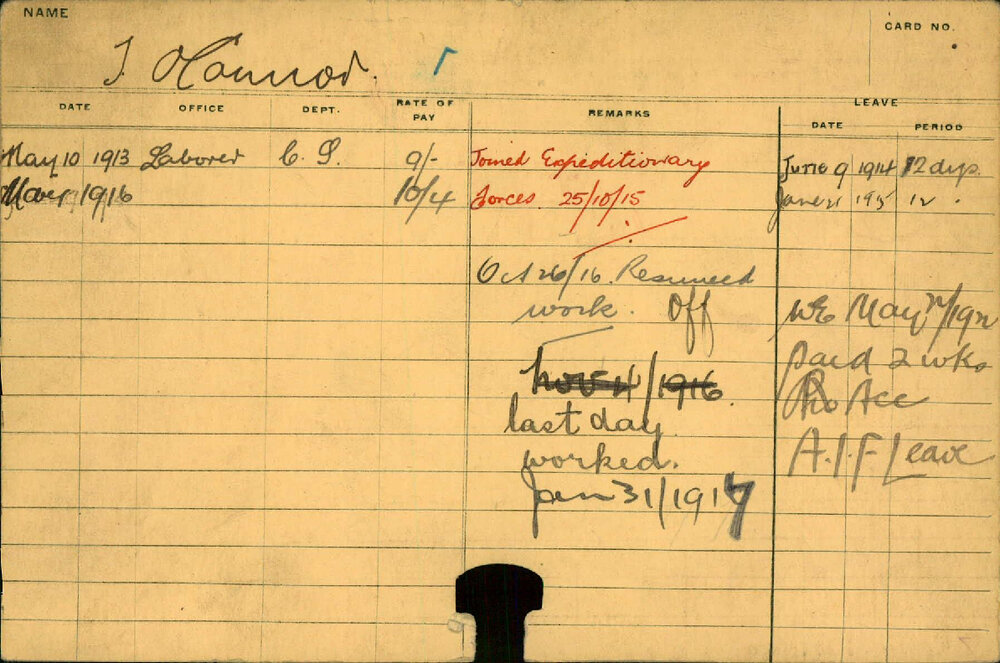 NAME
CARD NO.
J. O'Connor.
DATE OFFICE DEPT. RATE OF PAY REMARKS LEAVE
DATE PERIOD
May 10 1913 Laborer C. S. 9/- Joined Expeditionary June 9 1914 12 dys.
1916 10/4 Forces. 25/10/15 12
Oct 26/16. Resumed
work. Off
Nov 4/1916.
last day
worked.
Jan 31/1917
WE May
paid 2 wks
Acc
A.I.F Leave